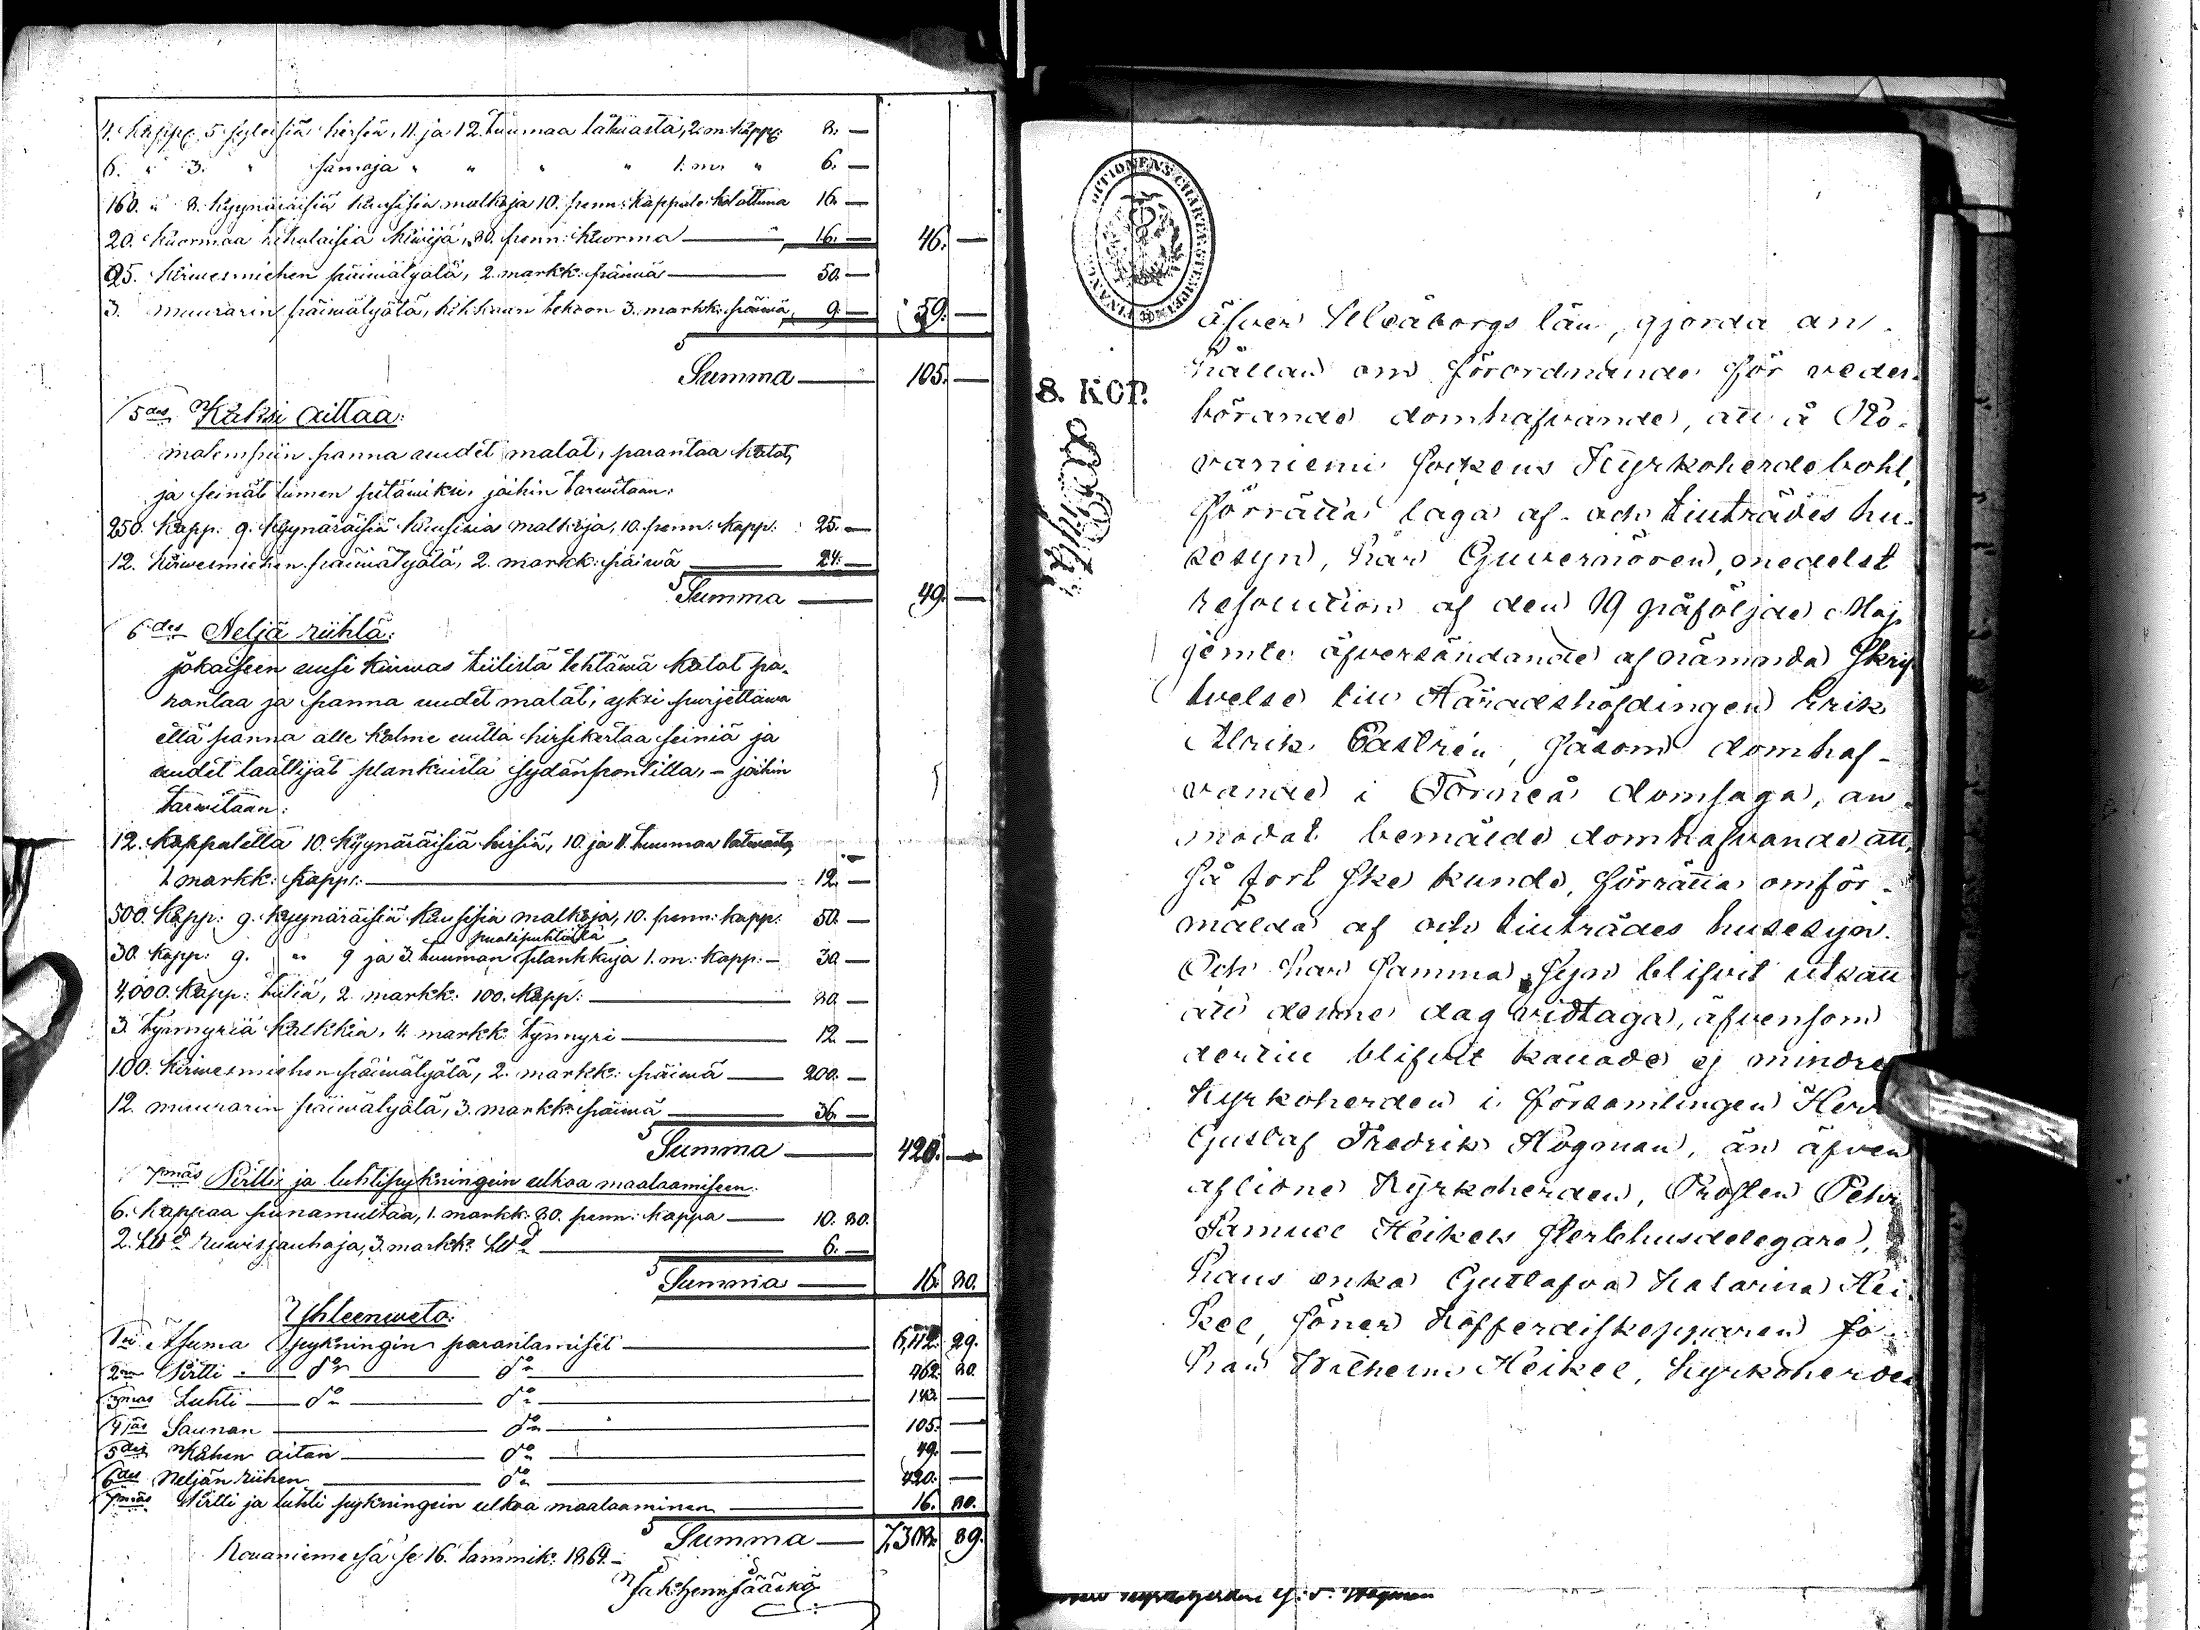 4. kappp. 5 sylisiä hirsiä, 11. ja 12. tuumaa latwasta, 2. m: kappp. 8. —
6. " 3. " samoja " " " " 1. m. " 6. —
160. " 8. kyynäräisiä kuusisia malkoja 10. penn: kappale kolottuna 16. —
20. kuormaa kiwijä, 80. penn: kuorma — 16. — 46. —
25. kirwesmiehen päiwätyötä, 2. markk: päiwä — 50. —
3. muurarin päiwätyötä, kiukaan tekoon 3. markk: päiwä, 9. — 59. —
Summa — 105. —
5des Kaksi aittaa:
molempiin panna uudet malat, parantaa katot,
ja seinät lumen pitäwiksi, joihin tarwitaan:
250. Kapp: 9. kyynäräisiä kuusisia malkoja, 10. penn: kapp: 25. —
12. kirwesmiehen päiwätyötä, 2. markk: päiwä — 24. —
Summa — 49. —
6des Neljä riihtä:
jokaiseen uusi kiuwas tiilistä tehtäwä katot pa-
rantaa ja panna uudet malat, yksi purjettawa
että panna alle kolme uutta hirsikertaa seiniä ja
uudet laattijat plankuista sydänpontilla, – joihin
tarwitaan:
12. kappaletta 10. kyynäräisiä hirsiä, 10. ja 11. tuumaa latwasta,
1 markk: kapp: — 12. —
500. kapp: 9. kyynäräisiä kuusisia malkoja, 10. penn: kapp: 50. —
puolipuhtaita
30. kapp: 9. " 9 ja 3. tuuman plankkuja 1. m: kapp: — 30. —
4,000. kapp: tiiliä, 2. markk: 100. kapp: — 80. —
3. tynnyriä kalkkia, 4. markk: tynnyri — 12. —
100. kirwesmiehen päiwätyötä, 2. markk: päiwä — 200. —
12. muurarin päiwätyötä, 3. markk: päiwä — 36. —
Summa — 420. —
7mäs Pirtti ja luhtipykningein ulkoa maalaamiseen:
6. kappaa punamultaa, 1. markk: 80. penn: kappa — 10. 80.
2. L℔ ruwisjauhoja, 3. markk: L℔ — 6. —
Summa — 16. 80.
Yhteenweto:
1nen Asuma pykningin parantamiset — 29.
2nen Pirtti — do — do — 462. 80.
3mas Luhti — do — do —
4jäs Saunan — do — 105. —
5des Kahen aitan — do — 49. —
6des Neljän riihen — do — 420. —
7mäs Pirtti ja luhti pykningein ulkoa maalaaminen — 16. 80.
Summa — 89.
Rovaniemessä se 16. tammik: 1864. –
Jak: Henr: Jääskö
8. KOP.
öfver Uleåborgs län, gjorda an-
hållan om förordnande för veder-
börande domhafvande, att å Ro-
vaniemi sockens Kyrkoherdebohl,
förrätta laga af- och tillträdes hu-
sesyn, har Guvernören, medelst
resolution af den 19 påföljde Maj
jemte öfversändande af nämnda skrif-
velse till Häradshöfdingen Erik
Ulrik Castrén, såsom domhaf-
vande i Torneå domsaga, an-
modat bemälde domhafvande att,
så fort ske kunde, förrätta omför-
mälda af och tillträdes husesyn.
Och har samma syn blifvit utsatt
att denne dag vidtaga, äfvensom
dertill blifvit kallade ej mindre
Kyrkoherden i församlingen Herr
Gustaf Fredrik Högman, än äfven
aflidne Kyrkoherden, Prosten Pehr
Samuel Heikels sterbhusdelegare,
hans enka Gustafva Katarina Hei-
kel, söner Kofferdiskepparen Jo-
han Wilhelm Heikel, Kyrkoherden